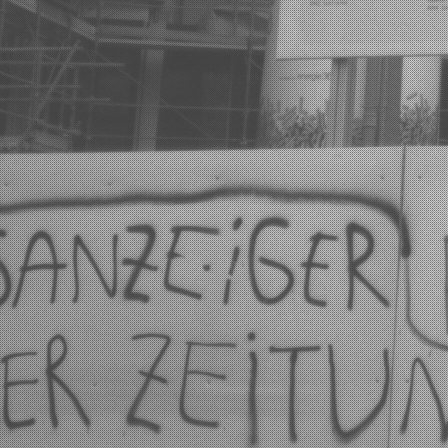 SANZEiGER
ER ZEiTUN